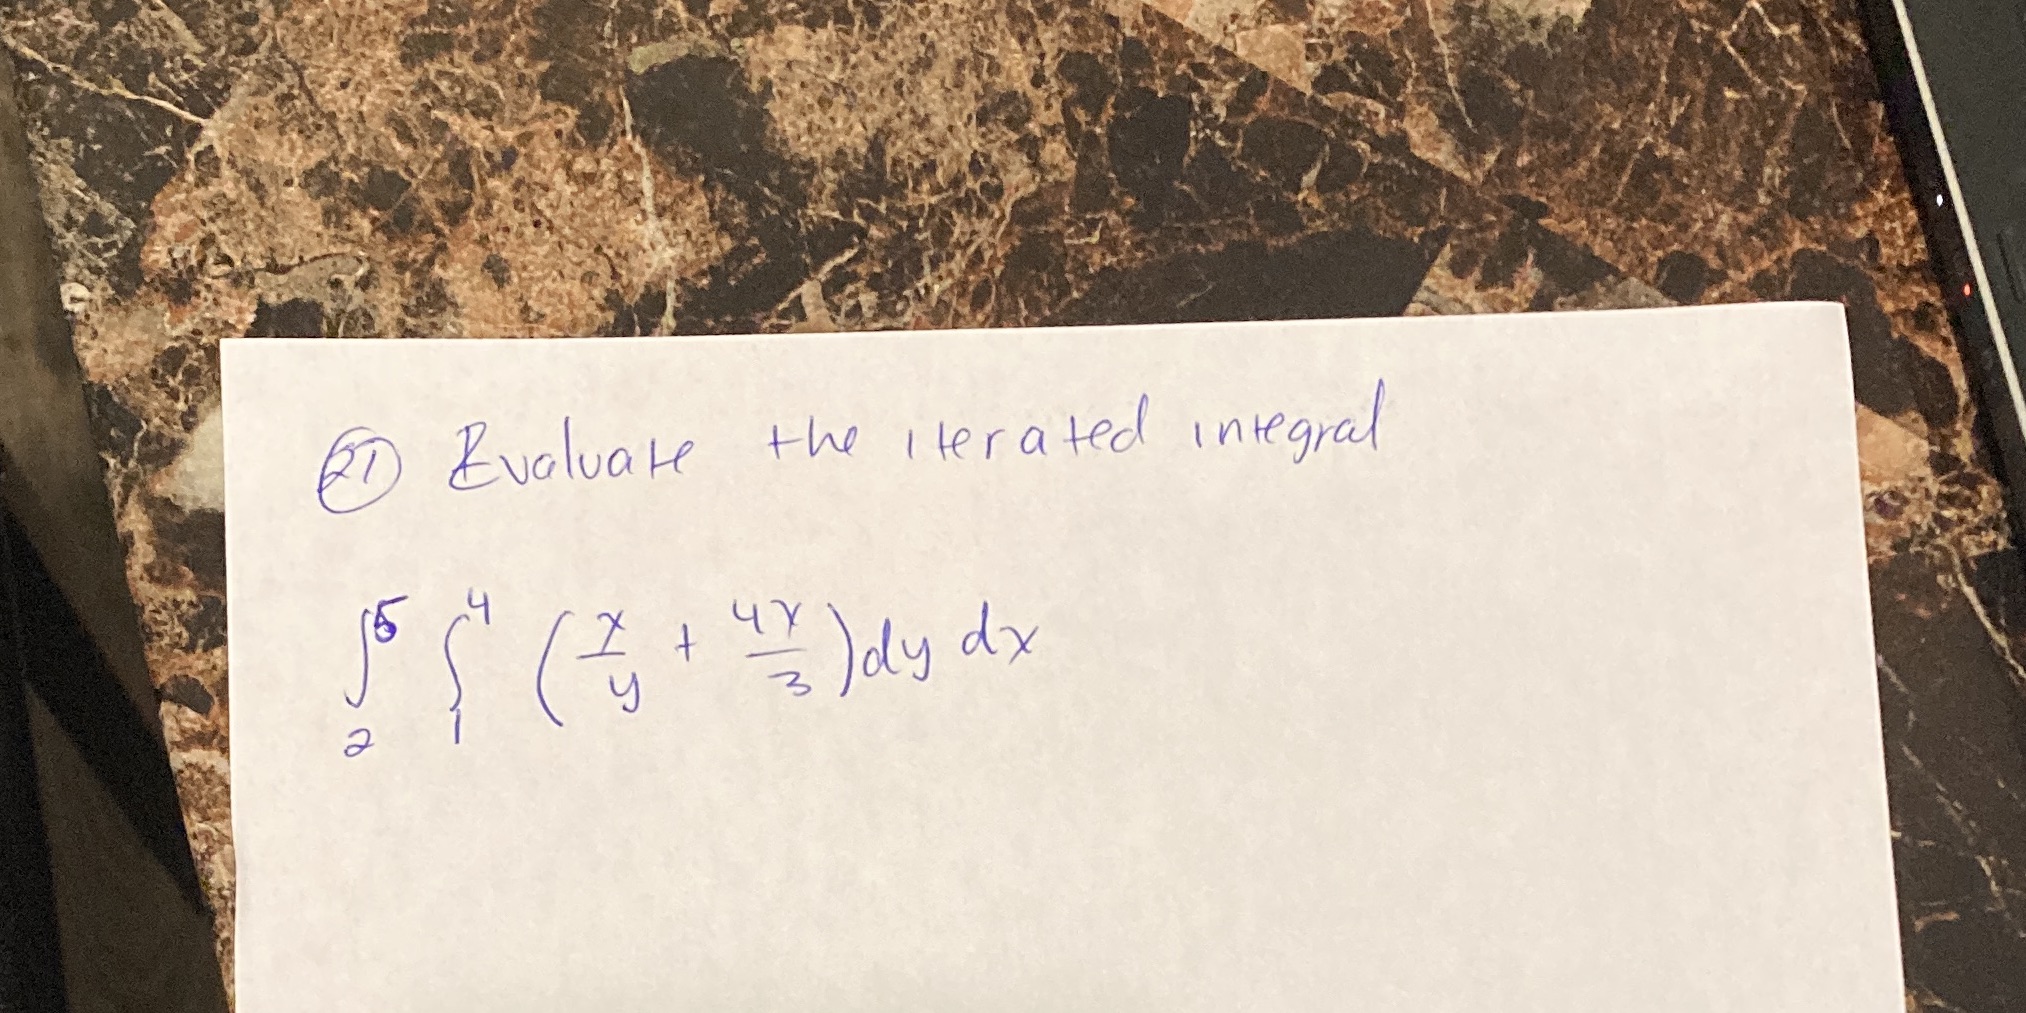 21 Evaluate the iterated integral
∫₂⁵ ∫₁⁴ (x/y + 4x/3) dy dx